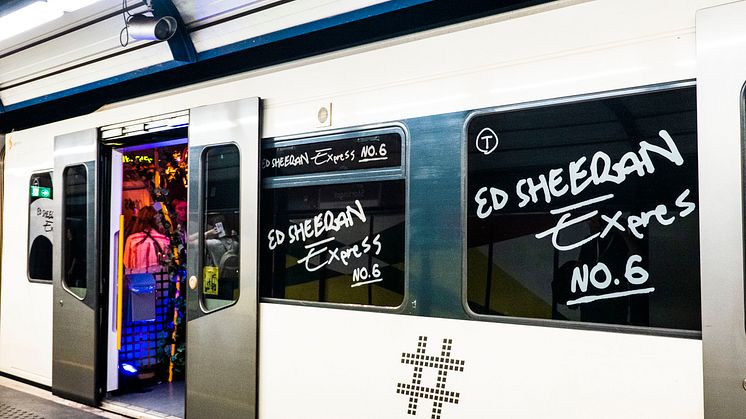 ED SHEERAN Express NO. 6
ED SHEERAN
Express
NO. 6
T
ED SHEERAN
Express
NO. 6
#